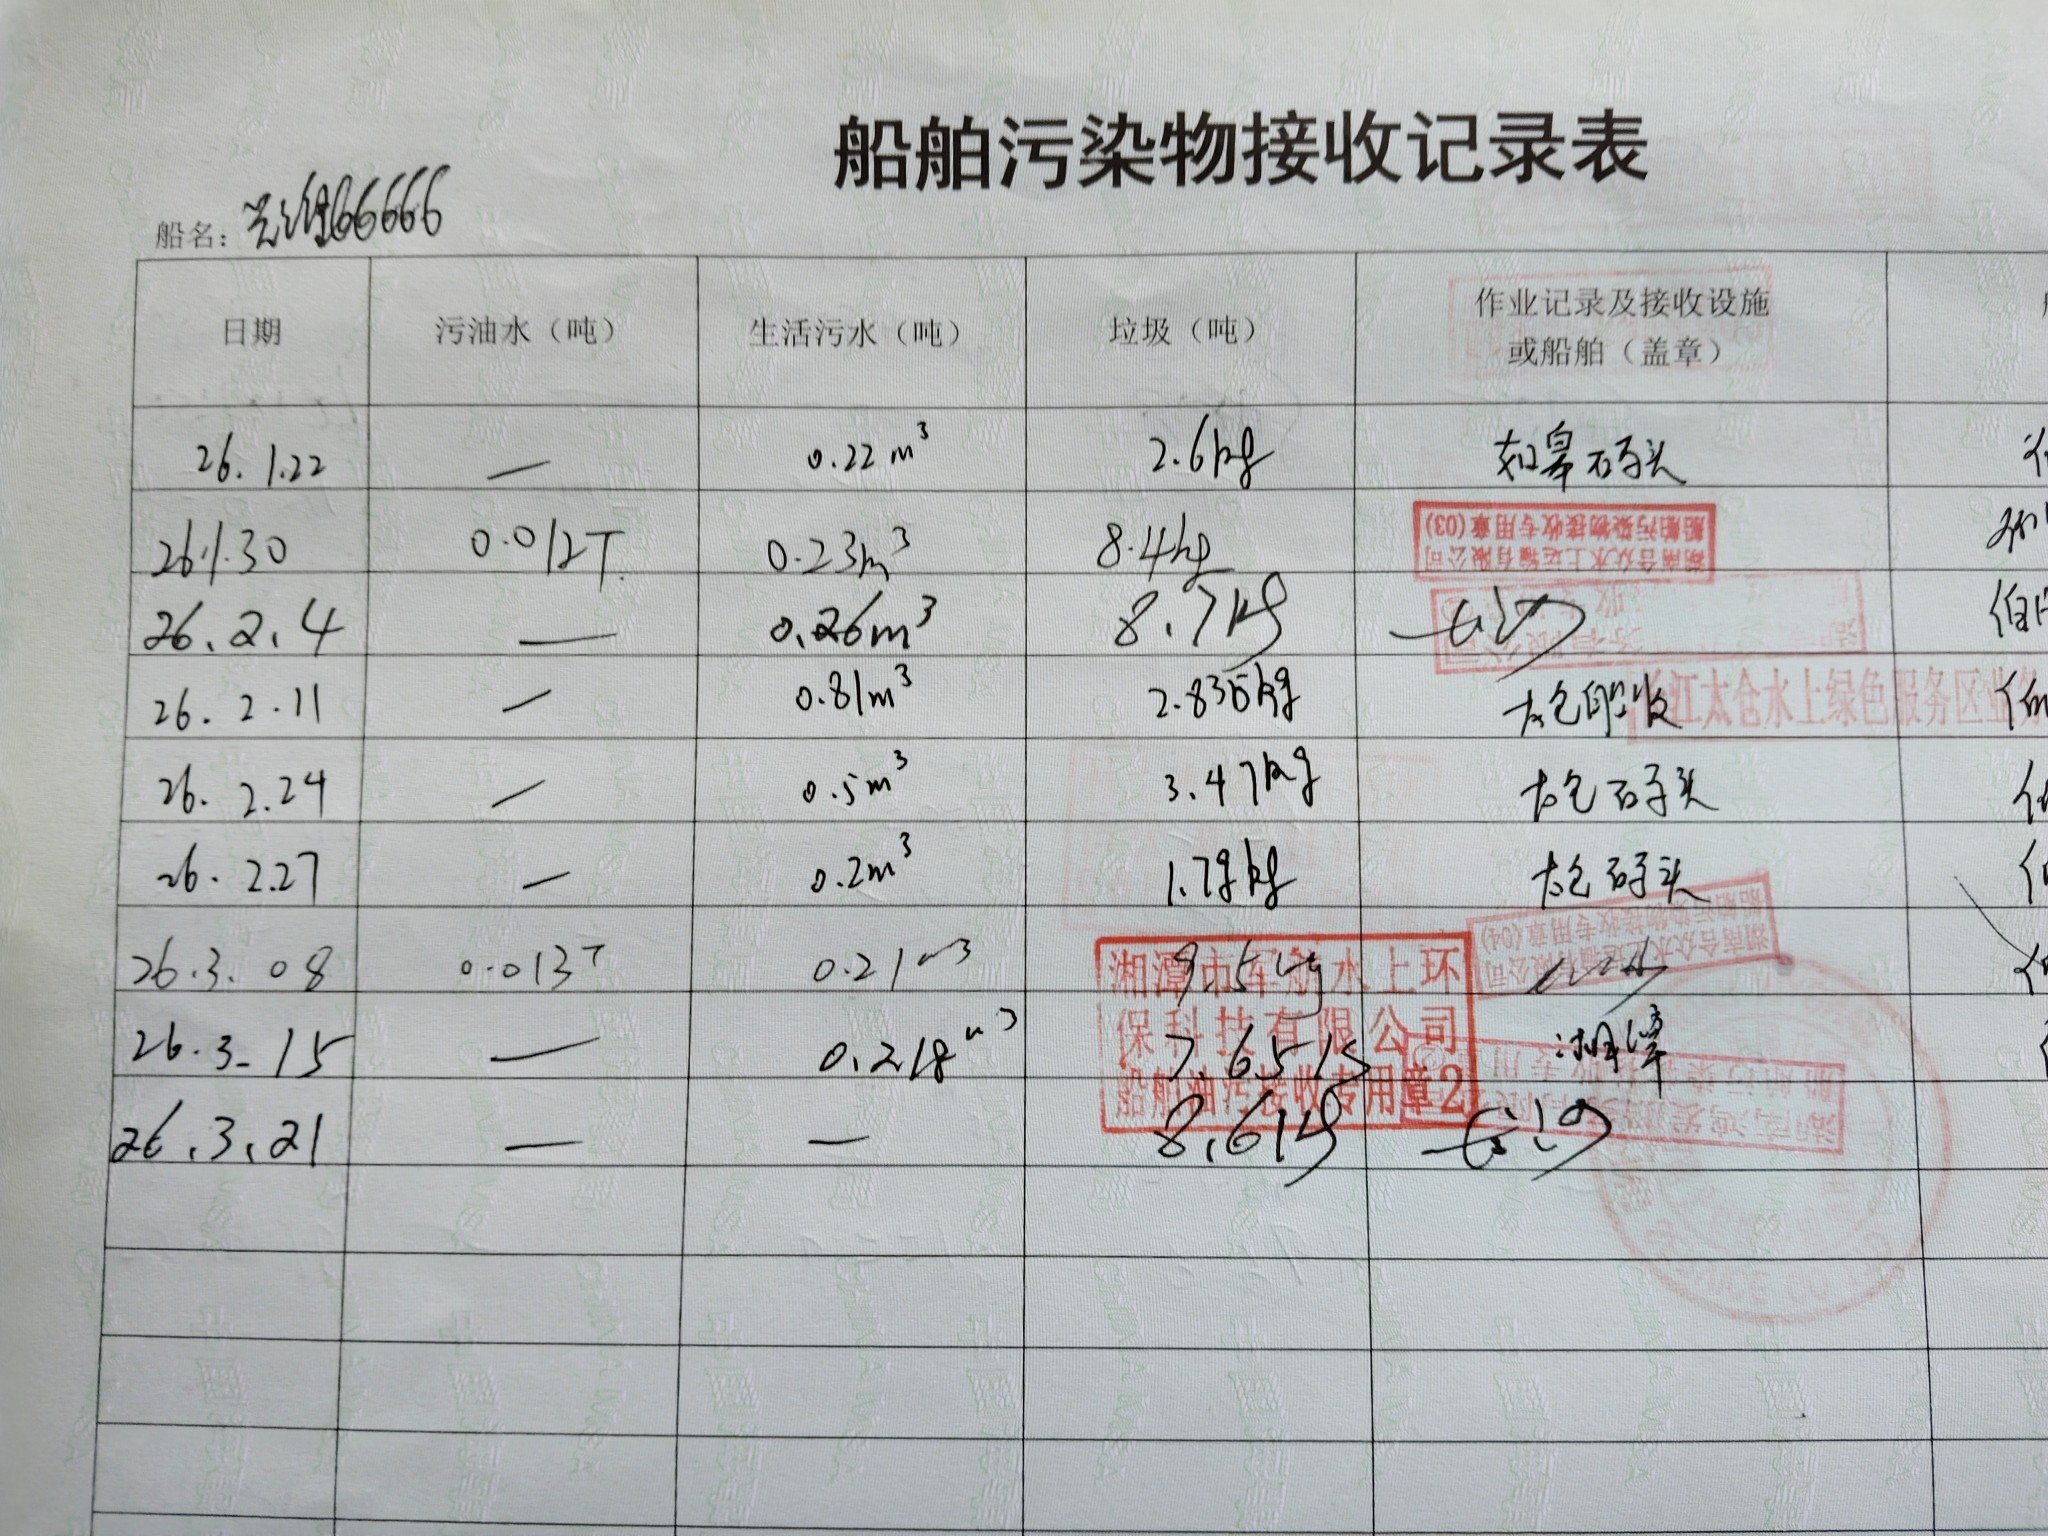 船舶污染物接收记录表
船名: 66666
日期 污油水（吨） 生活污水（吨） 垃圾（吨） 作业记录及接收设施
或船舶（盖章）
26.1.22 — 0.22m³ 2.6kg 如皋码头
26.1.30 0.012T. 0.23m³ 8.4kg
船舶污染物接收专用章(03)
湖南合众水上运输有限公司
26.2.4 — 0.26m³ 8.7kg
26.2.11 — 0.81m³ 2.835kg
江太仓水上绿色服务区业务
26.2.24 — 0.5m³ 3.47kg 太仓码头
26.2.27 — 0.2m³ 1.79kg 太仓码头
船舶污染物接收专用章(04)
湖南合众水上运输有限公司
26.3.08 0.013T 0.21m³ 9.5kg
湘潭市军航水上环
保科技有限公司
船舶油污接收专用章2
26.3.15 — 0.218m³ 7.65kg 湘潭
26.3.21 — — 8.6kg